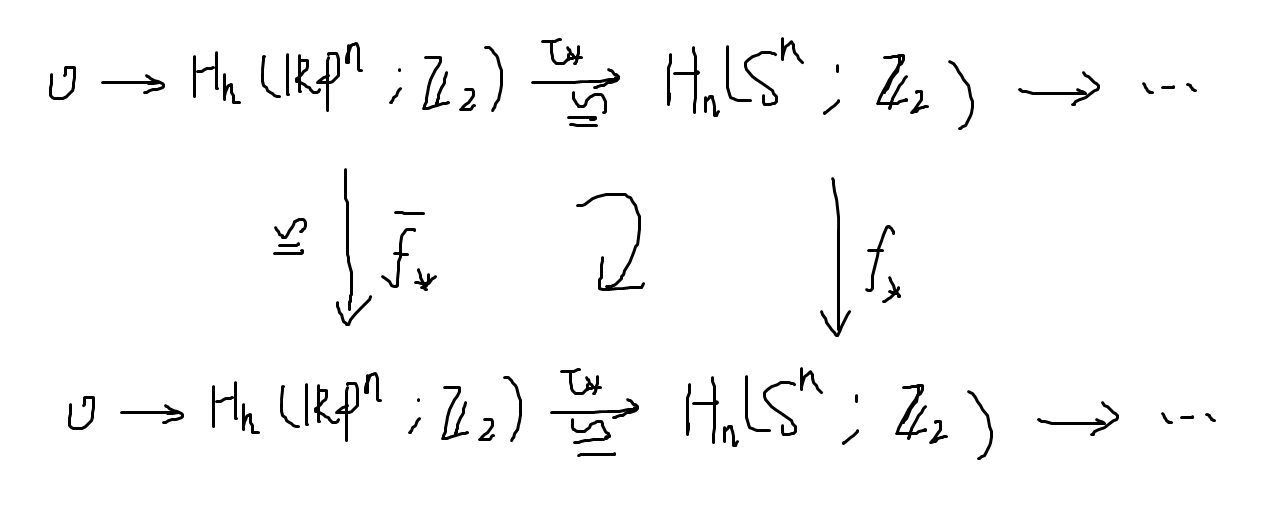 0 → Hₙ(ℝPⁿ; ℤ₂) τ_* ≅ → Hₙ(Sⁿ; ℤ₂) → ...
≅ ↓ f̄_* ↻ ↓ f_*
0 → Hₙ(ℝPⁿ; ℤ₂) τ_* ≅ → Hₙ(Sⁿ; ℤ₂) → ...